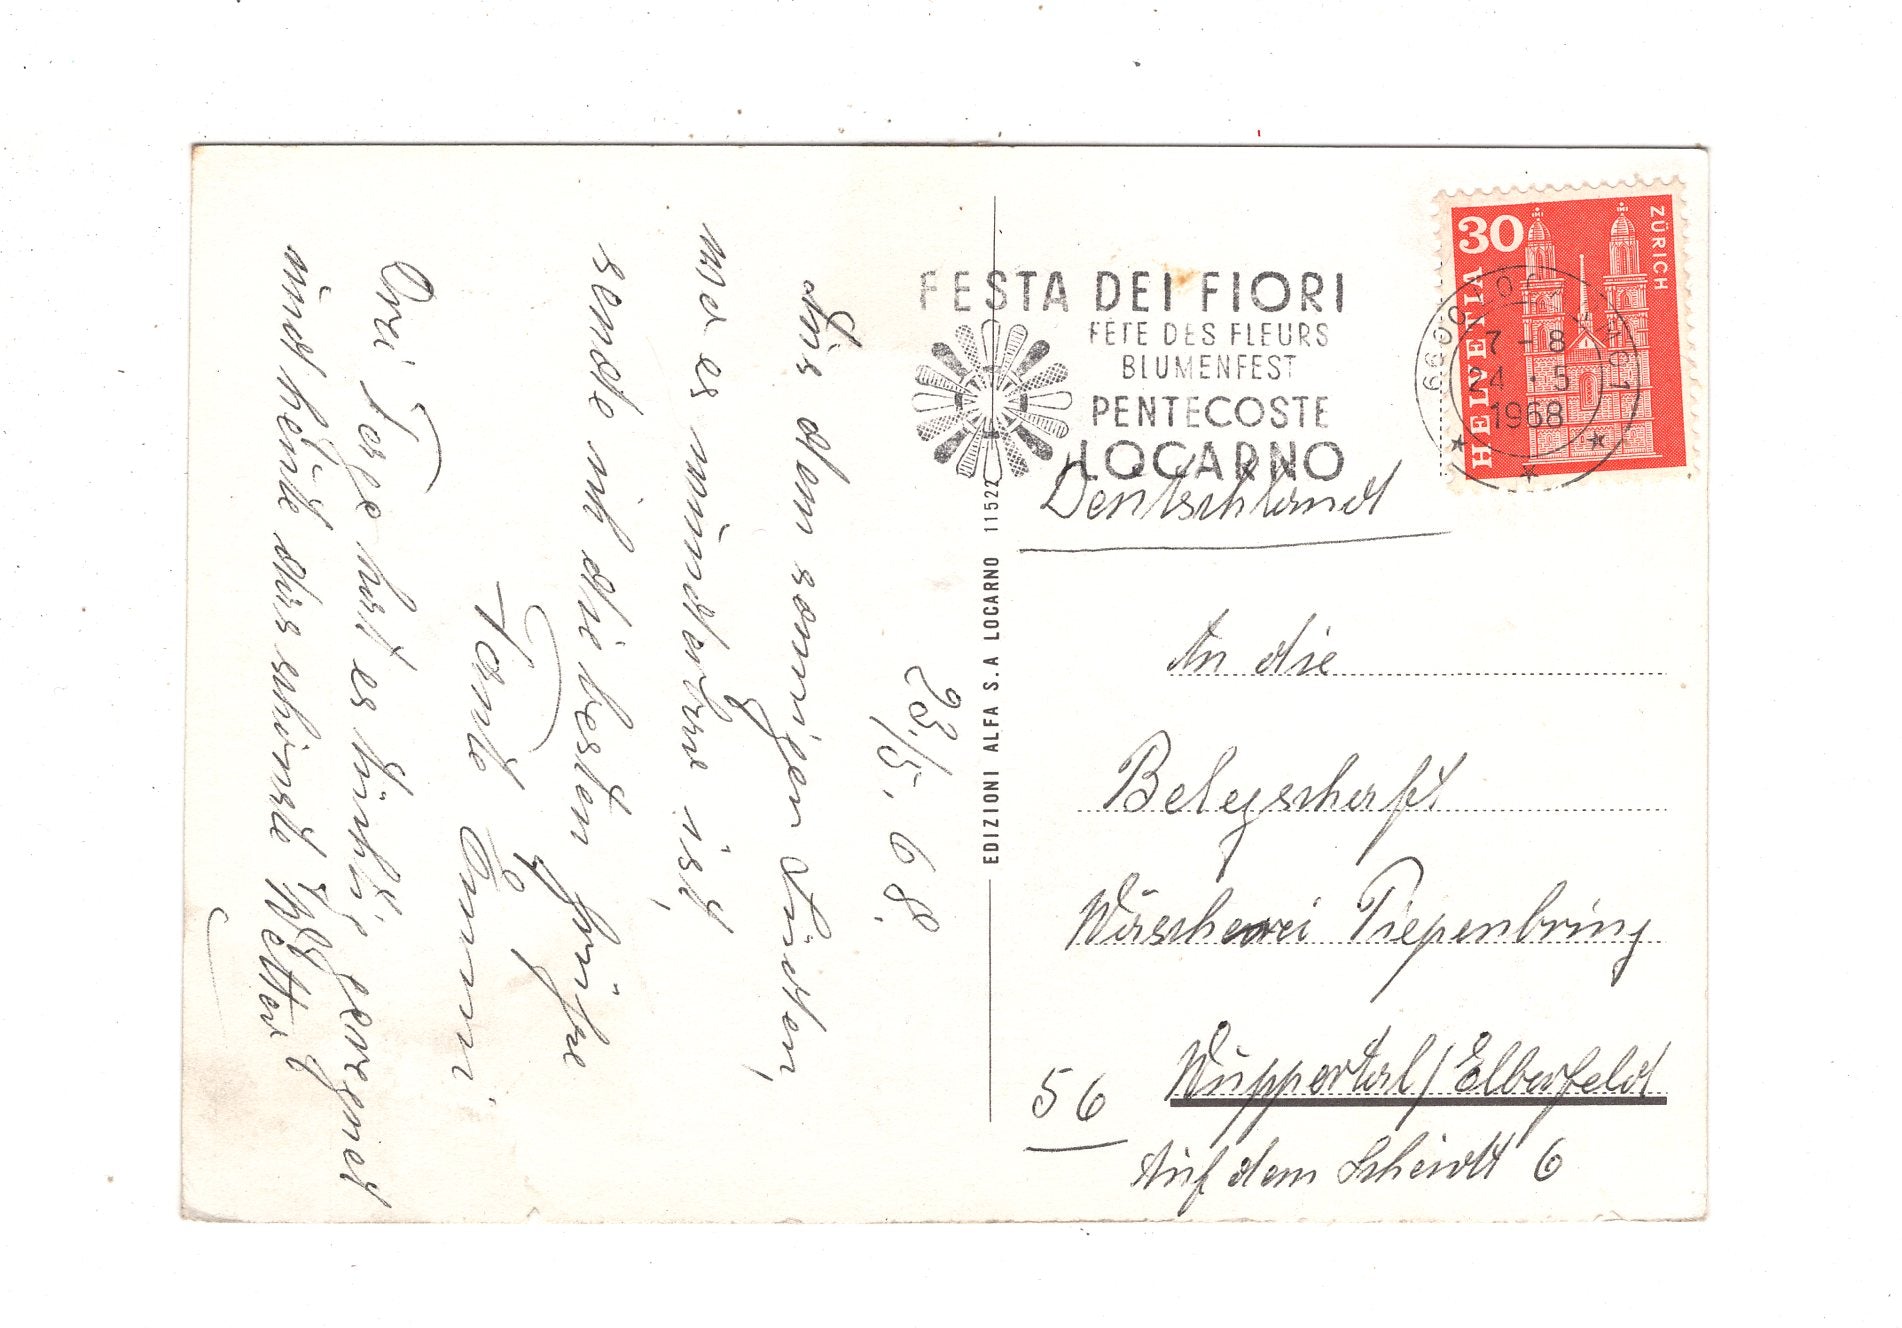 23./5. 68.
Aus dem sonnigen Süden,
wo es wunderbar ist,
sende ich die besten Grüße
Tante Emmi
Drei Tage hat es tüchtig geregnet
und heute das schönste Wetter.
EDIZIONI ALFA S.A LOCARNO 11522
FESTA DEI FIORI
FÊTE DES FLEURS
BLUMENFEST
PENTECOSTE
LOCARNO
30
HELVETIA
ZÜRICH
6600 LOCARNO 1
7 - 8
24 . 5
1968
Deutschland
An die
Belegschaft
Wäscherei Tiepenbring
56 Wuppertal / Elberfeld
Auf dem Scheidt 6